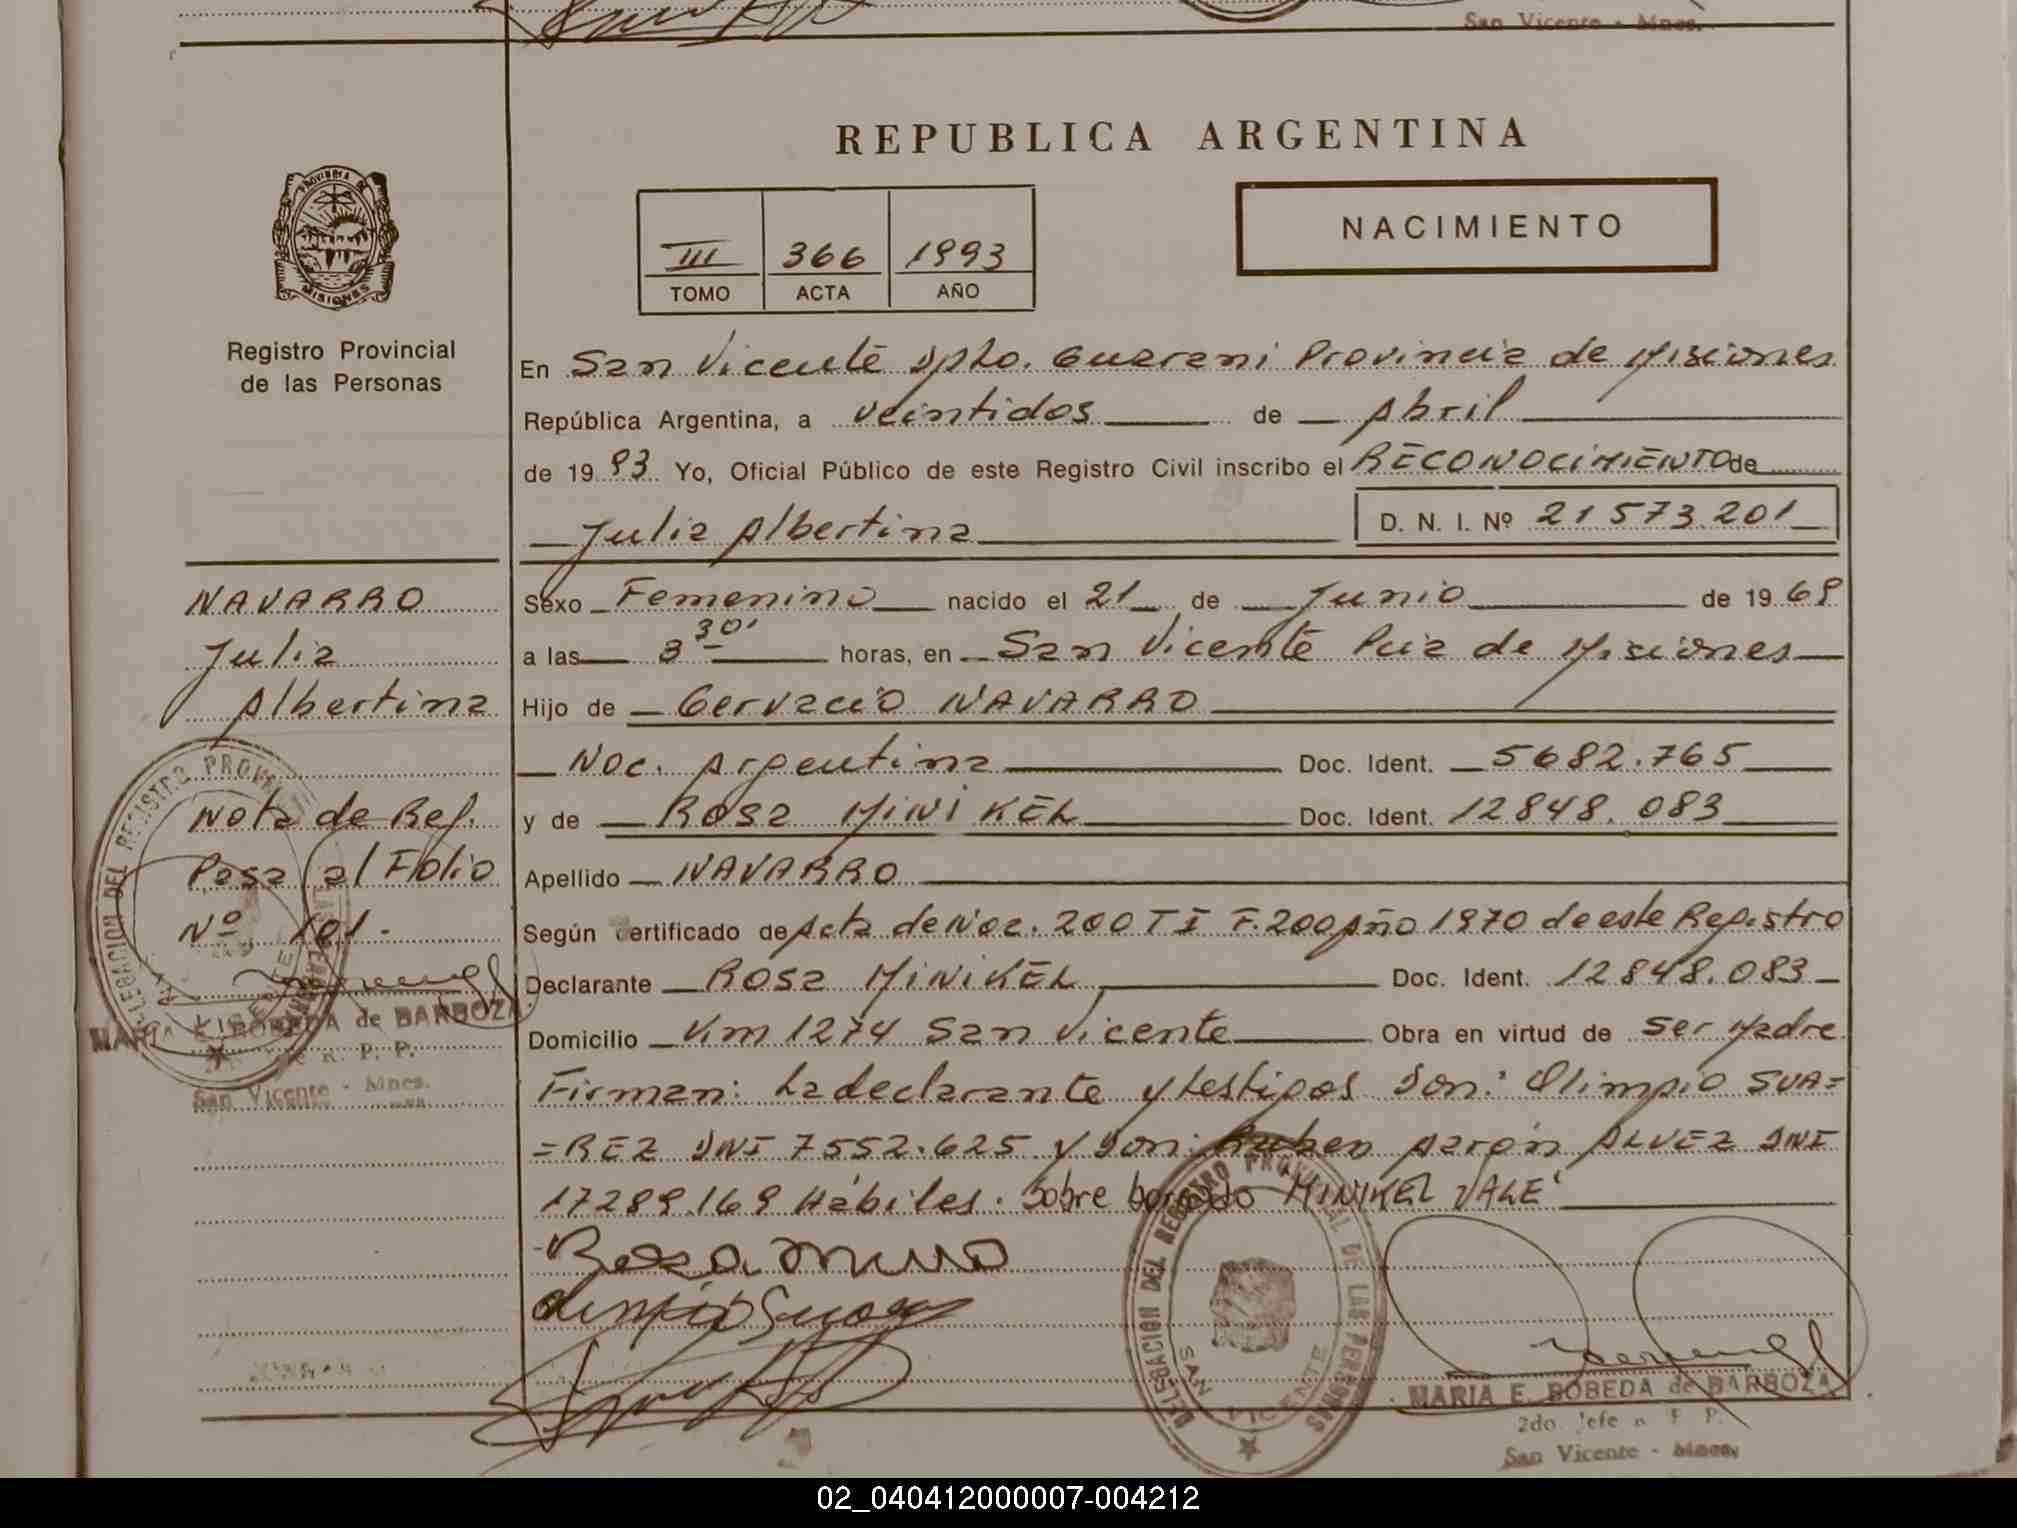 San Vicente - Mnes.
REPUBLICA ARGENTINA
PROVINCIA DE
MISIONES
Registro Provincial
de las Personas
III 366 1993
TOMO ACTA AÑO
NACIMIENTO
En San Vicente Dpto. Guarani Provincia de Misiones
República Argentina, a veintidos de Abril
de 1993 Yo, Oficial Público de este Registro Civil inscribo el RECONOCIMIENTO de
Julia Albertina D. N. I. Nº 21 573.201
NAVARRO
Julia
Albertina
Nota de Ref.
Pasa al Folio
Nº 101.-
MARIA E. BOBEDA de BARBOZA
San Vicente - Mnes.
Sexo Femenino nacido el 21 de Junio de 1969
a las 3 30' horas, en San Vicente Pcia de Misiones
Hijo de Gervacio NAVARRO
Nac. Argentina Doc. Ident. 5682.765
y de Rosa MINIKEL Doc. Ident. 12848.083
Apellido NAVARRO
Según certificado de Acta de Nac. 200 T I F. 200 Año 1970 de este Registro
Declarante Rosa MINIKEL Doc. Ident. 12848.083
Domicilio Km 1274 San Vicente Obra en virtud de ser Madre
Firman: La declarante y testigos Don: Olimpio SUA=
=REZ DNI 7552.625 y Don: Ruben Aarón ALVEZ DNI
17289.169 Hábiles. Sobre borrado MINIKEL VALE
DELEGACION DEL REGISTRO PROVINCIAL DE LAS PERSONAS
SAN VICENTE
MARIA E. BOBEDA de BARBOZA
2do. Jefe R. P. P.
San Vicente - Mnes.
02_040412000007-004212